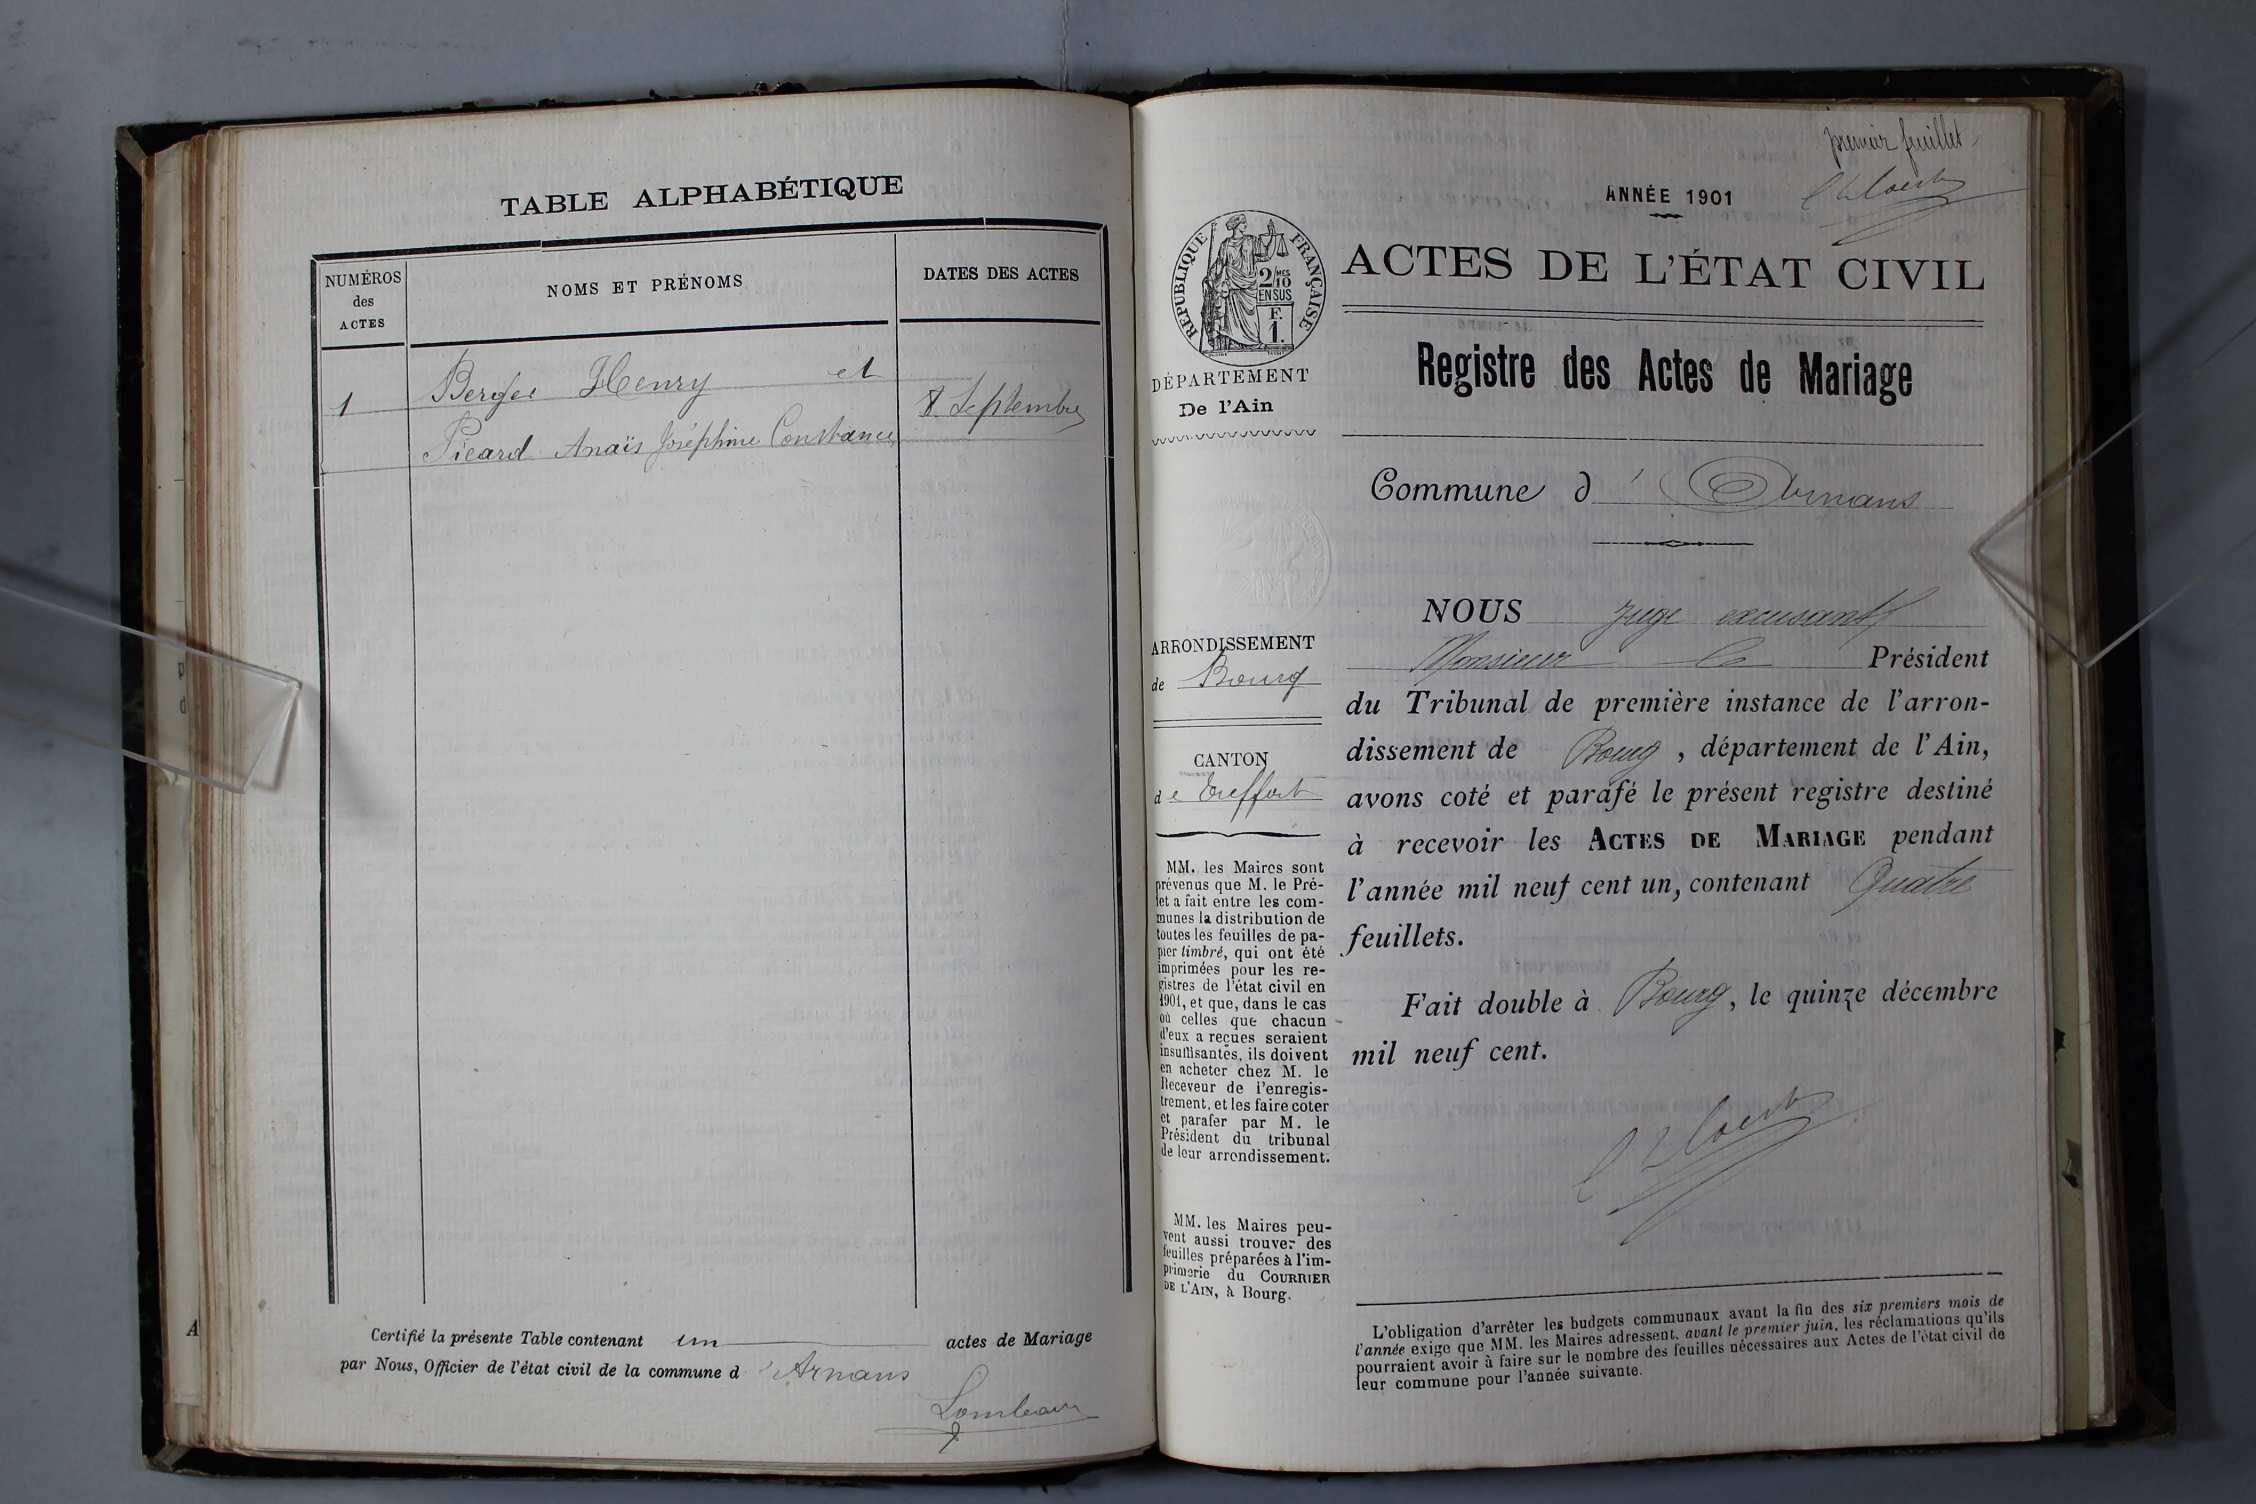 TABLE ALPHABÉTIQUE
NUMÉROS
des
ACTES
NOMS ET PRÉNOMS
DATES DES ACTES
Berger Henry et
1
8 Septembre
Picard Anaïs Joséphine Constance
Certifié la présente Table contenant un actes de Mariage
par Nous, Officier de l'état civil de la commune d'Arnans
premier feuillet
ANNÉE 1901
RÉPUBLIQUE FRANÇAISE
2/10 MES
EN SUS
F.
1.
ACTES DE L'ÉTAT CIVIL
Registre des Actes de Mariage
DÉPARTEMENT
De l'Ain
Commune d'Arnans
ARRONDISSEMENT
de Bourg
CANTON
de Treffort
MM. les Maires sont
prévenus que M. le Pré-
fet a fait entre les com-
munes la distribution de
toutes les feuilles de pa-
pier timbré, qui ont été
imprimées pour les re-
gistres de l'état civil en
1901, et que, dans le cas
où celles que chacun
d'eux a reçues seraient
insuffisantes, ils doivent
en acheter chez M. le
Receveur de l'enregis-
trement, et les faire coter
et parafer par M. le
Président du tribunal
de leur arrondissement.
MM. les Maires peu-
vent aussi trouver des
feuilles préparées à l'im-
primerie du COURRIER
DE L'AIN, à Bourg.
NOUS Juge excusant
Monsieur le Président
du Tribunal de première instance de l'arron-
dissement de Bourg, département de l'Ain,
avons coté et parafé le présent registre destiné
à recevoir les ACTES DE MARIAGE pendant
l'année mil neuf cent un, contenant Quatre
feuillets.
Fait double à Bourg, le quinze décembre
mil neuf cent.
L'obligation d'arrêter les budgets communaux avant la fin des six premiers mois de
l'année exige que MM. les Maires adressent, avant le premier juin, les réclamations qu'ils
pourraient avoir à faire sur le nombre des feuilles nécessaires aux Actes de l'état civil de
leur commune pour l'année suivante.